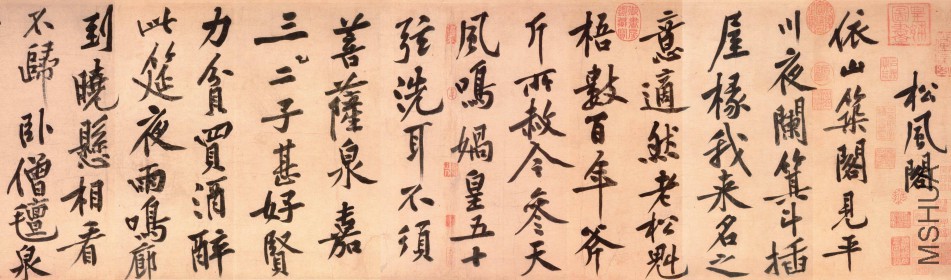 松風閣
依山築閣見平
川夜闌箕斗插
屋椽我来名之
意適然老松魁
梧數百年斧
斤所赦今參天
風鳴媧皇五十
弦洗耳不須
菩薩泉嘉
三二子甚好賢
力貧買酒醉
此筵夜雨鳴廊
到曉懸相看
不歸臥僧氈泉
MSHU